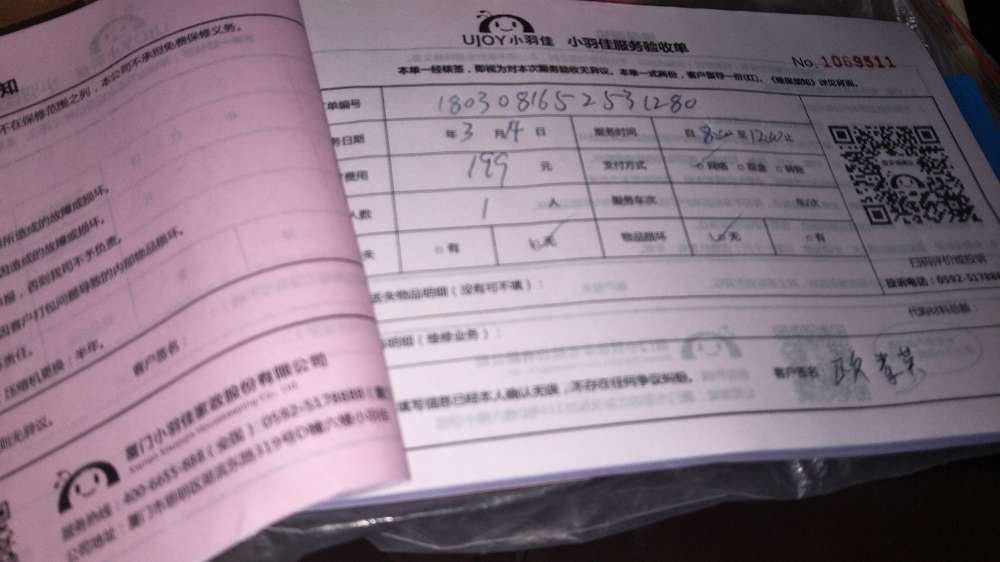 UJOY小羽佳 小羽佳服务验收单
No. 1069911
本单一经核签，即视为对本次服务验收无异议。本单一式两份，客户留存一份(红)。《维保须知》详见背面。
单编号 180308165253 1280
务日期 年3月4日 服务时间 自 8:00 至 12:00 止
费用 199 元 支付方式 网络 现金 转账
人数 1 人 服务车次 车/次
失 有 无 物品损坏 无 有
扫码评价或投诉
丢失物品明细（没有可不填）：
投诉电话：0592-517888
代购材料总额：
明细（维修业务）：
填写信息已经本人确认无误，不存在任何争议纠纷。
客户签名
知
不在保修范围之列，本公司不承担免费保修义务。
所造成的故障或损坏。
因造成的故障或损坏。
报，否则我司不予负责。
因客户打包问题导致的内部物品损坏。
责任。
压缩机更换：半年。
客户签名：
则无异议。
厦门小羽佳家政股份有限公司
服务热线：400-6655-888（全国）0592-5178888
公司地址：厦门市思明区湖滨东路319号D幢六楼小羽佳